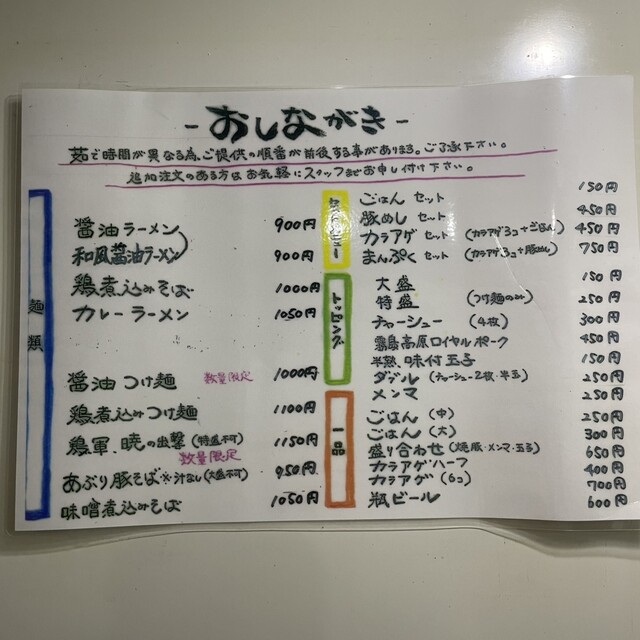 -おしながき-
茹で時間が異なる為、ご提供の順番が前後する事があります。ご了承下さい。
追加注文のある方はお気軽にスタッフまでお申し付け下さい。
麺類
醤油ラーメン 900円
和風醤油ラーメン 900円
鶏煮込みそば 1000円
カレーラーメン 1050円
醤油つけ麺 数量限定 1000円
鶏煮込みつけ麺 1100円
鶏軍、暁の出撃(特盛不可) 1150円
数量限定
あぶり豚そば※汁なし(大盛不可) 950円
味噌煮込みそば 1050円
ごはんセット 150円
豚めしセット 450円
カラアゲセット (カラアゲ3コ+ごはん) 450円
まんぷくセット (カラアゲ3コ+豚めし) 750円
トッピング
大盛 150円
特盛 (つけ麺のみ) 250円
チャーシュー (4枚) 300円
霧島高原ロイヤルポーク 450円
半熟、味付玉子 150円
ダブル (チャーシュー2枚・半玉) 250円
メンマ 250円
一品
ごはん (中) 250円
ごはん (大) 300円
盛り合わせ (焼豚・メンマ・玉子) 650円
カラアゲハーフ 400円
カラアゲ (6コ) 700円
瓶ビール 600円